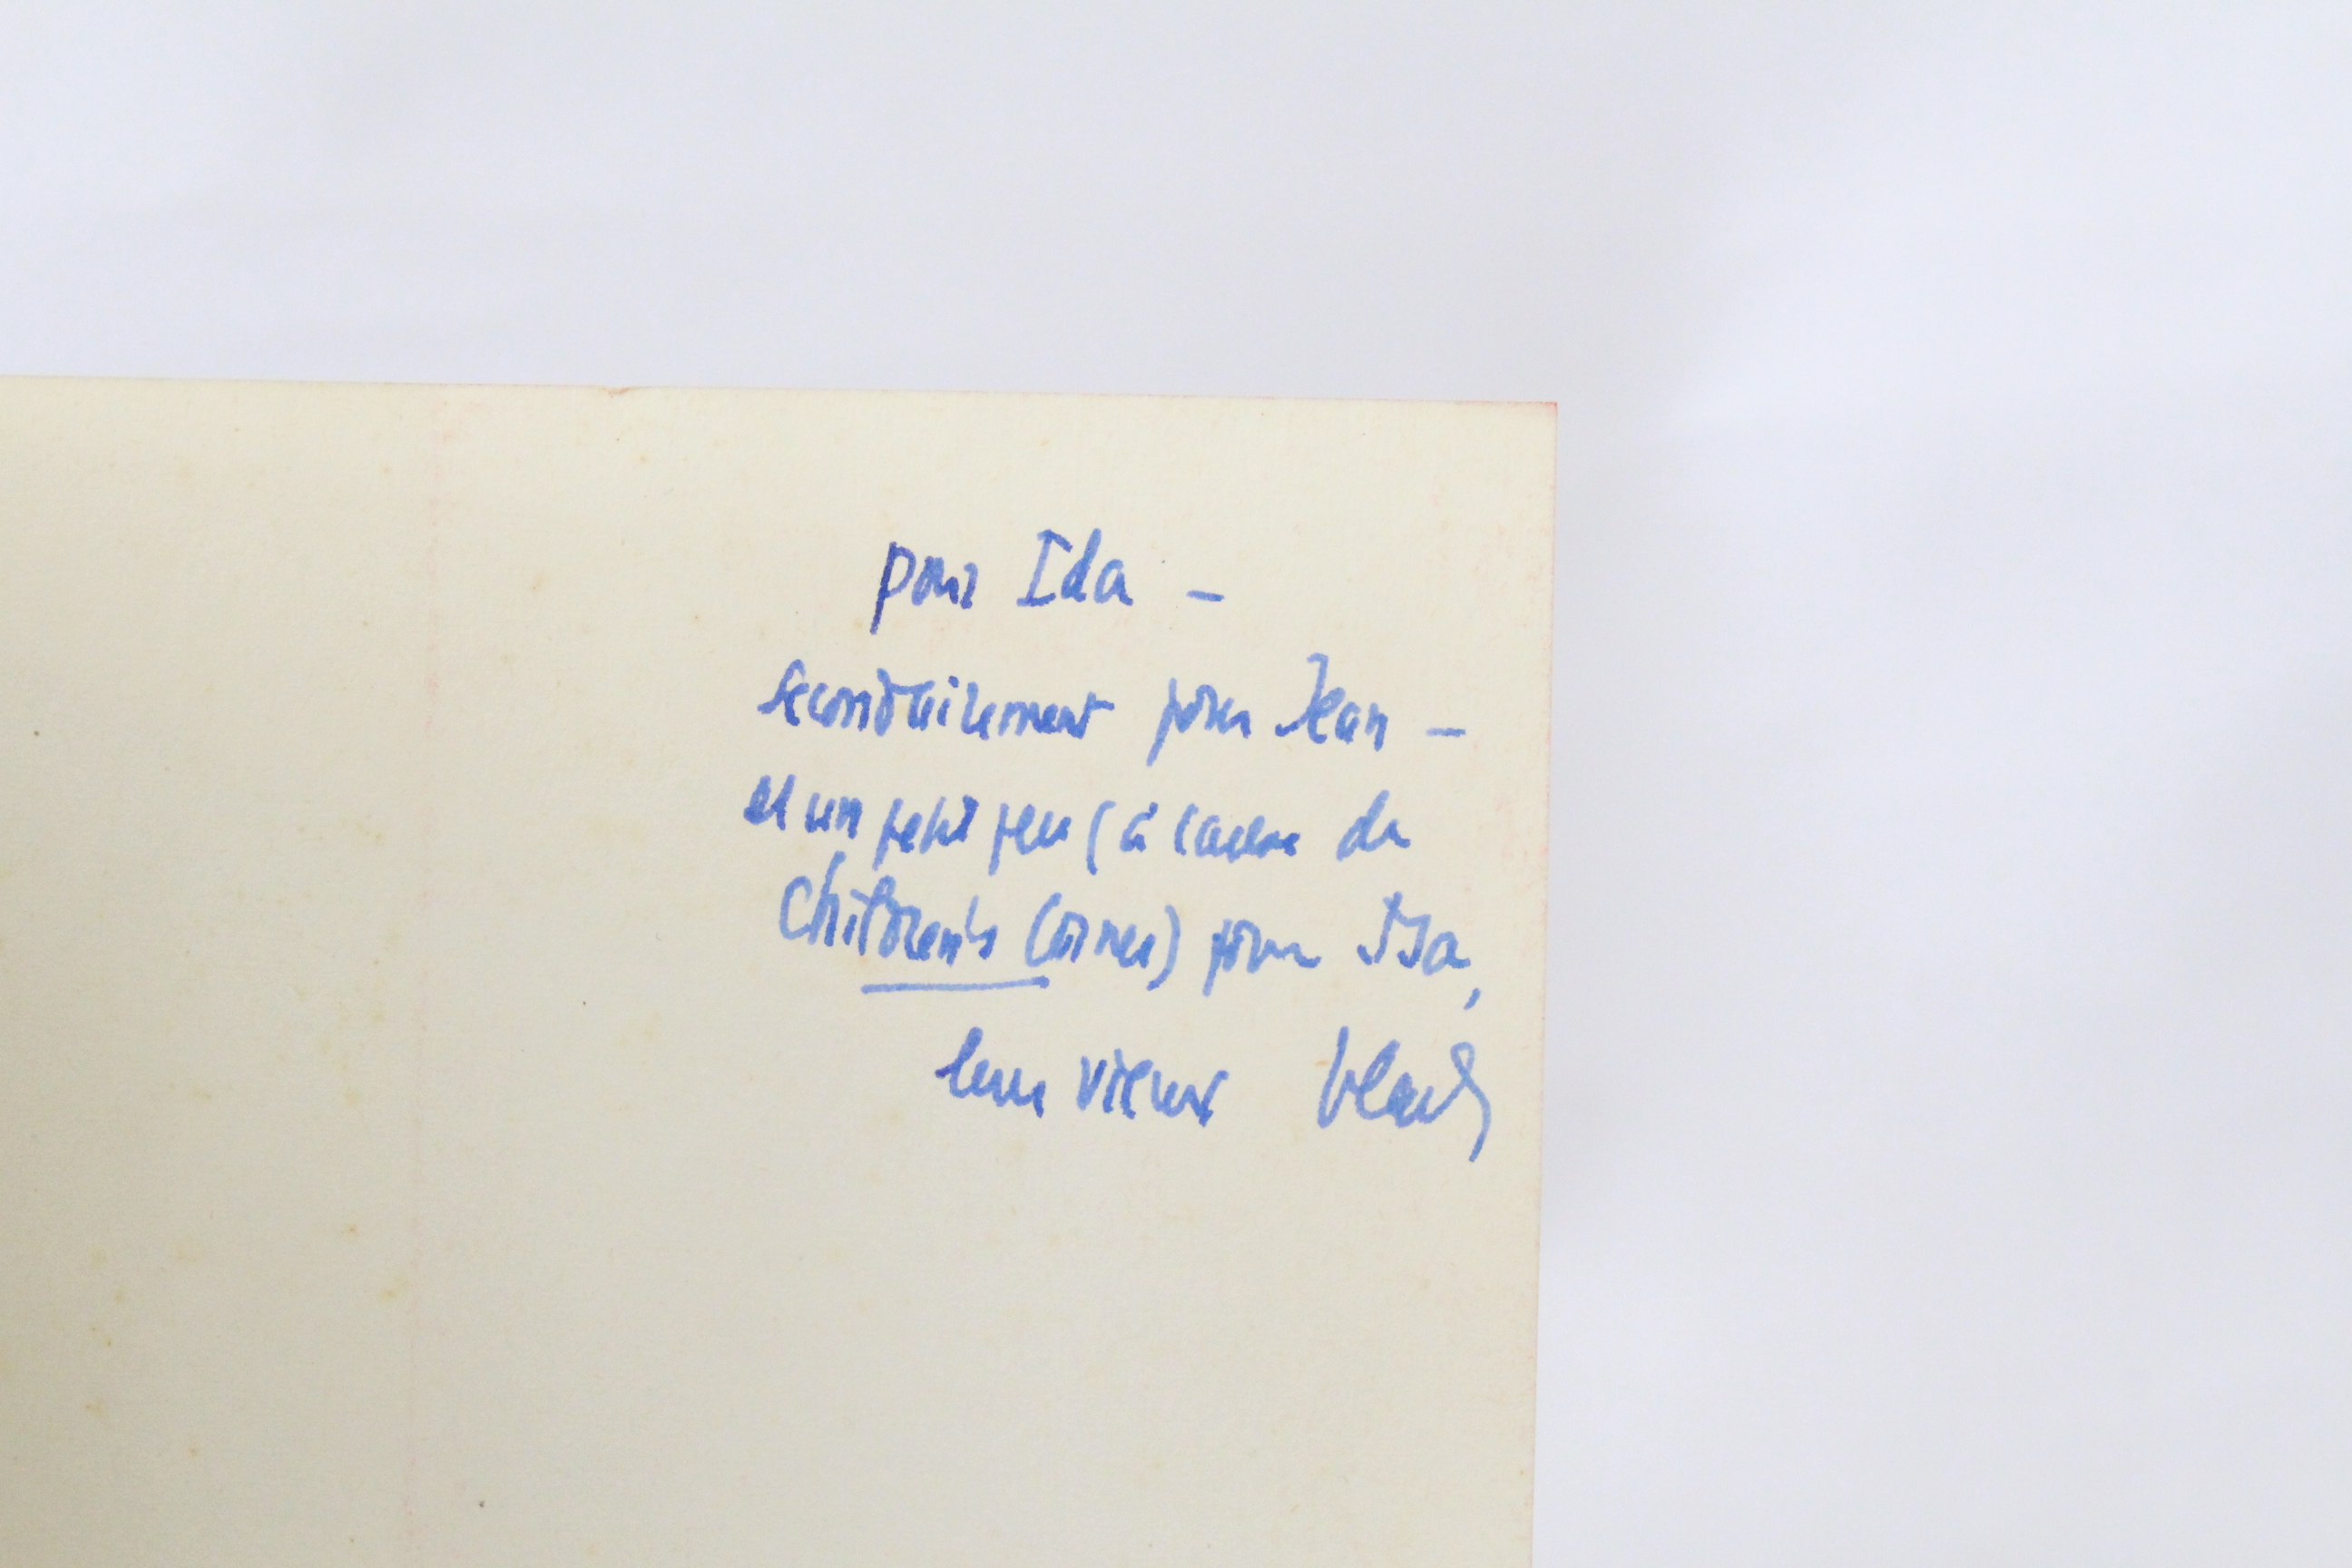 pour Ida –
secondairement pour Jean –
et un petit peu (à cause de
Children's Corner) pour Isa,
leur vieux Vlad